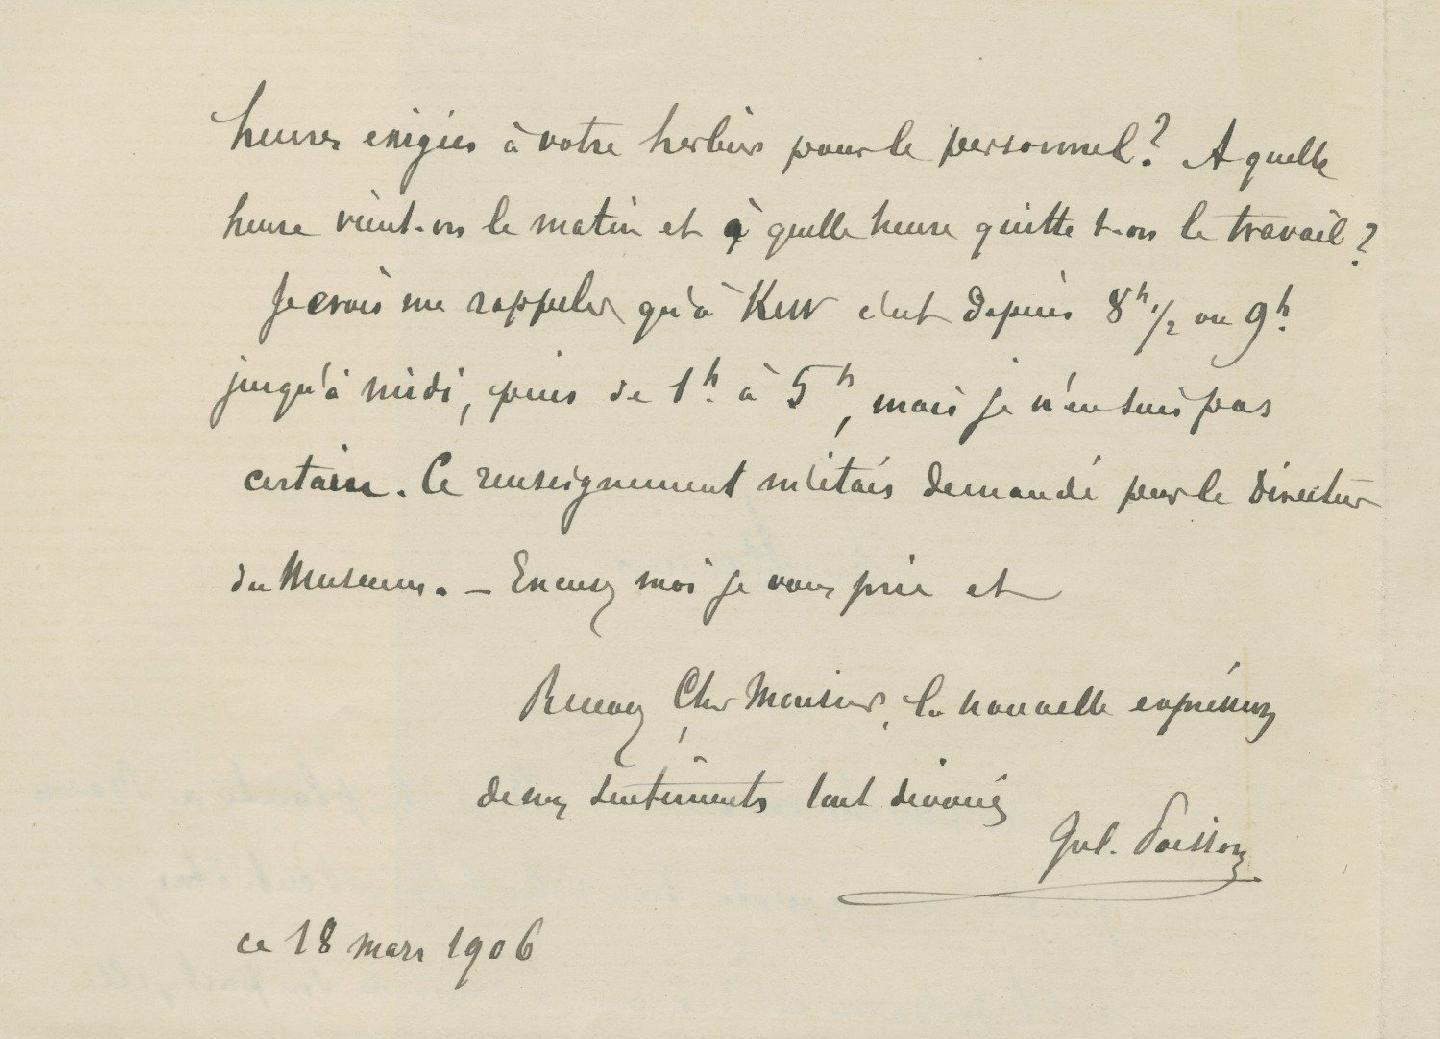 heures exigées à votre herbier pour le personnel? A quelle
heure vient-on le matin et à quelle heure quitte t-on le travail?
Je crois me rappeler qu'à Kew c'est depuis 8h 1/2 ou 9h.
jusqu'à midi, puis de 1h. à 5h, mais je n'en suis pas
certain. Ce renseignement m'était demandé par le Directeur
du Museum. — Excusez moi je vous prie et
Recevez, Cher Monsieur, la nouvelle expression
de mes sentiments tout dévoués
Jul. Poisson
ce 18 mars 1906